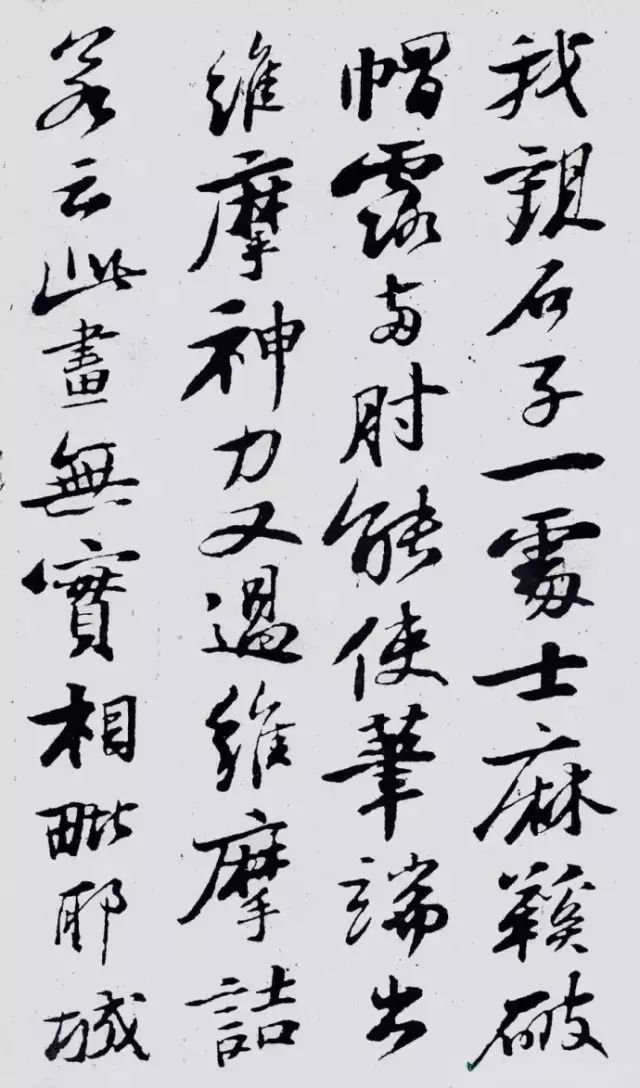 我觀石子一處士麻鞵破
帽露兩肘能使筆端出
維摩神力又過維摩詰
若云此畫無實相毗耶城